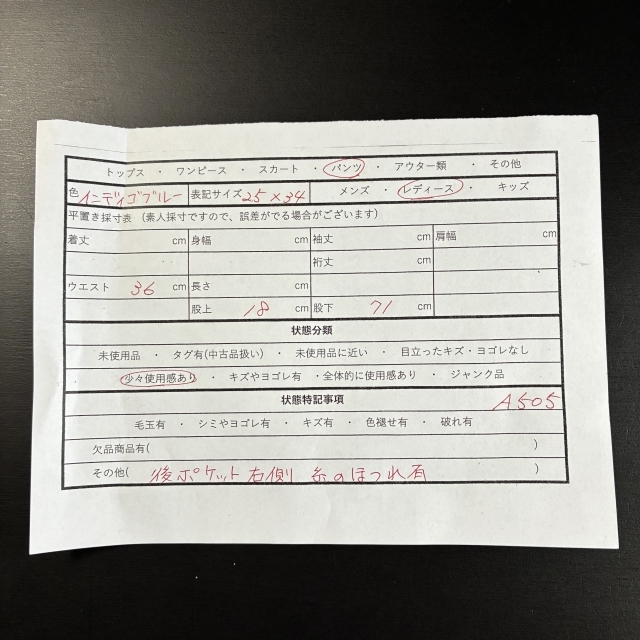 トップス ・ ワンピース ・ スカート ・ パンツ ・ アウター類 ・ その他
色 インディゴブルー 表記サイズ 25×34 メンズ ・ レディース ・ キッズ
平置き採寸表 (素人採寸ですので、誤差がでる場合がございます)
着丈 cm 身幅 cm 袖丈 cm 肩幅 cm
裄丈 cm
ウエスト 36 cm 長さ cm
股上 18 cm 股下 71 cm
状態分類
未使用品 ・ タグ有(中古品扱い) ・ 未使用品に近い ・ 目立ったキズ・ヨゴレなし
少々使用感あり ・ キズやヨゴレ有 ・全体的に使用感あり ・ ジャンク品
状態特記事項 A505
毛玉有 ・ シミやヨゴレ有 ・ キズ有 ・ 色褪せ有 ・ 破れ有
欠品商品有( )
その他( 後ポケット右側 糸のほつれ有 )